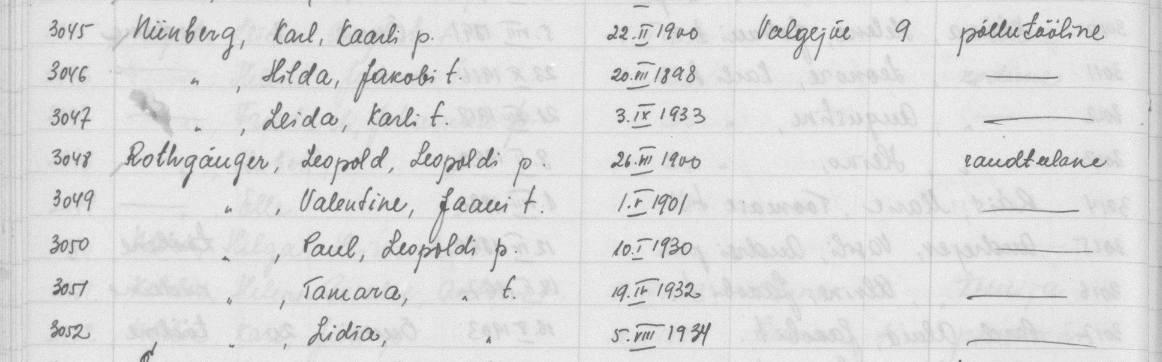 3045 Nünberg, Karl, Kaarli p. 22.II 1900 Valgejõe 9 põllutööline
3046 " , Hilda, Jakobi t. 20.III 1898 —
3047 " , Leida, Karli t. 3.IX 1933 —
3048 Rothgänger, Leopold, Leopoldi p 26.VII 1900 raudteelane
3049 " , Valentine, Jaani t. 1.V 1901 —
3050 " , Paul, Leopoldi p. 10.I 1930 —
3051 " , Tamara, " t. 19.IV 1932 —
3052 " , Lidia, " 5.VIII 1934 —